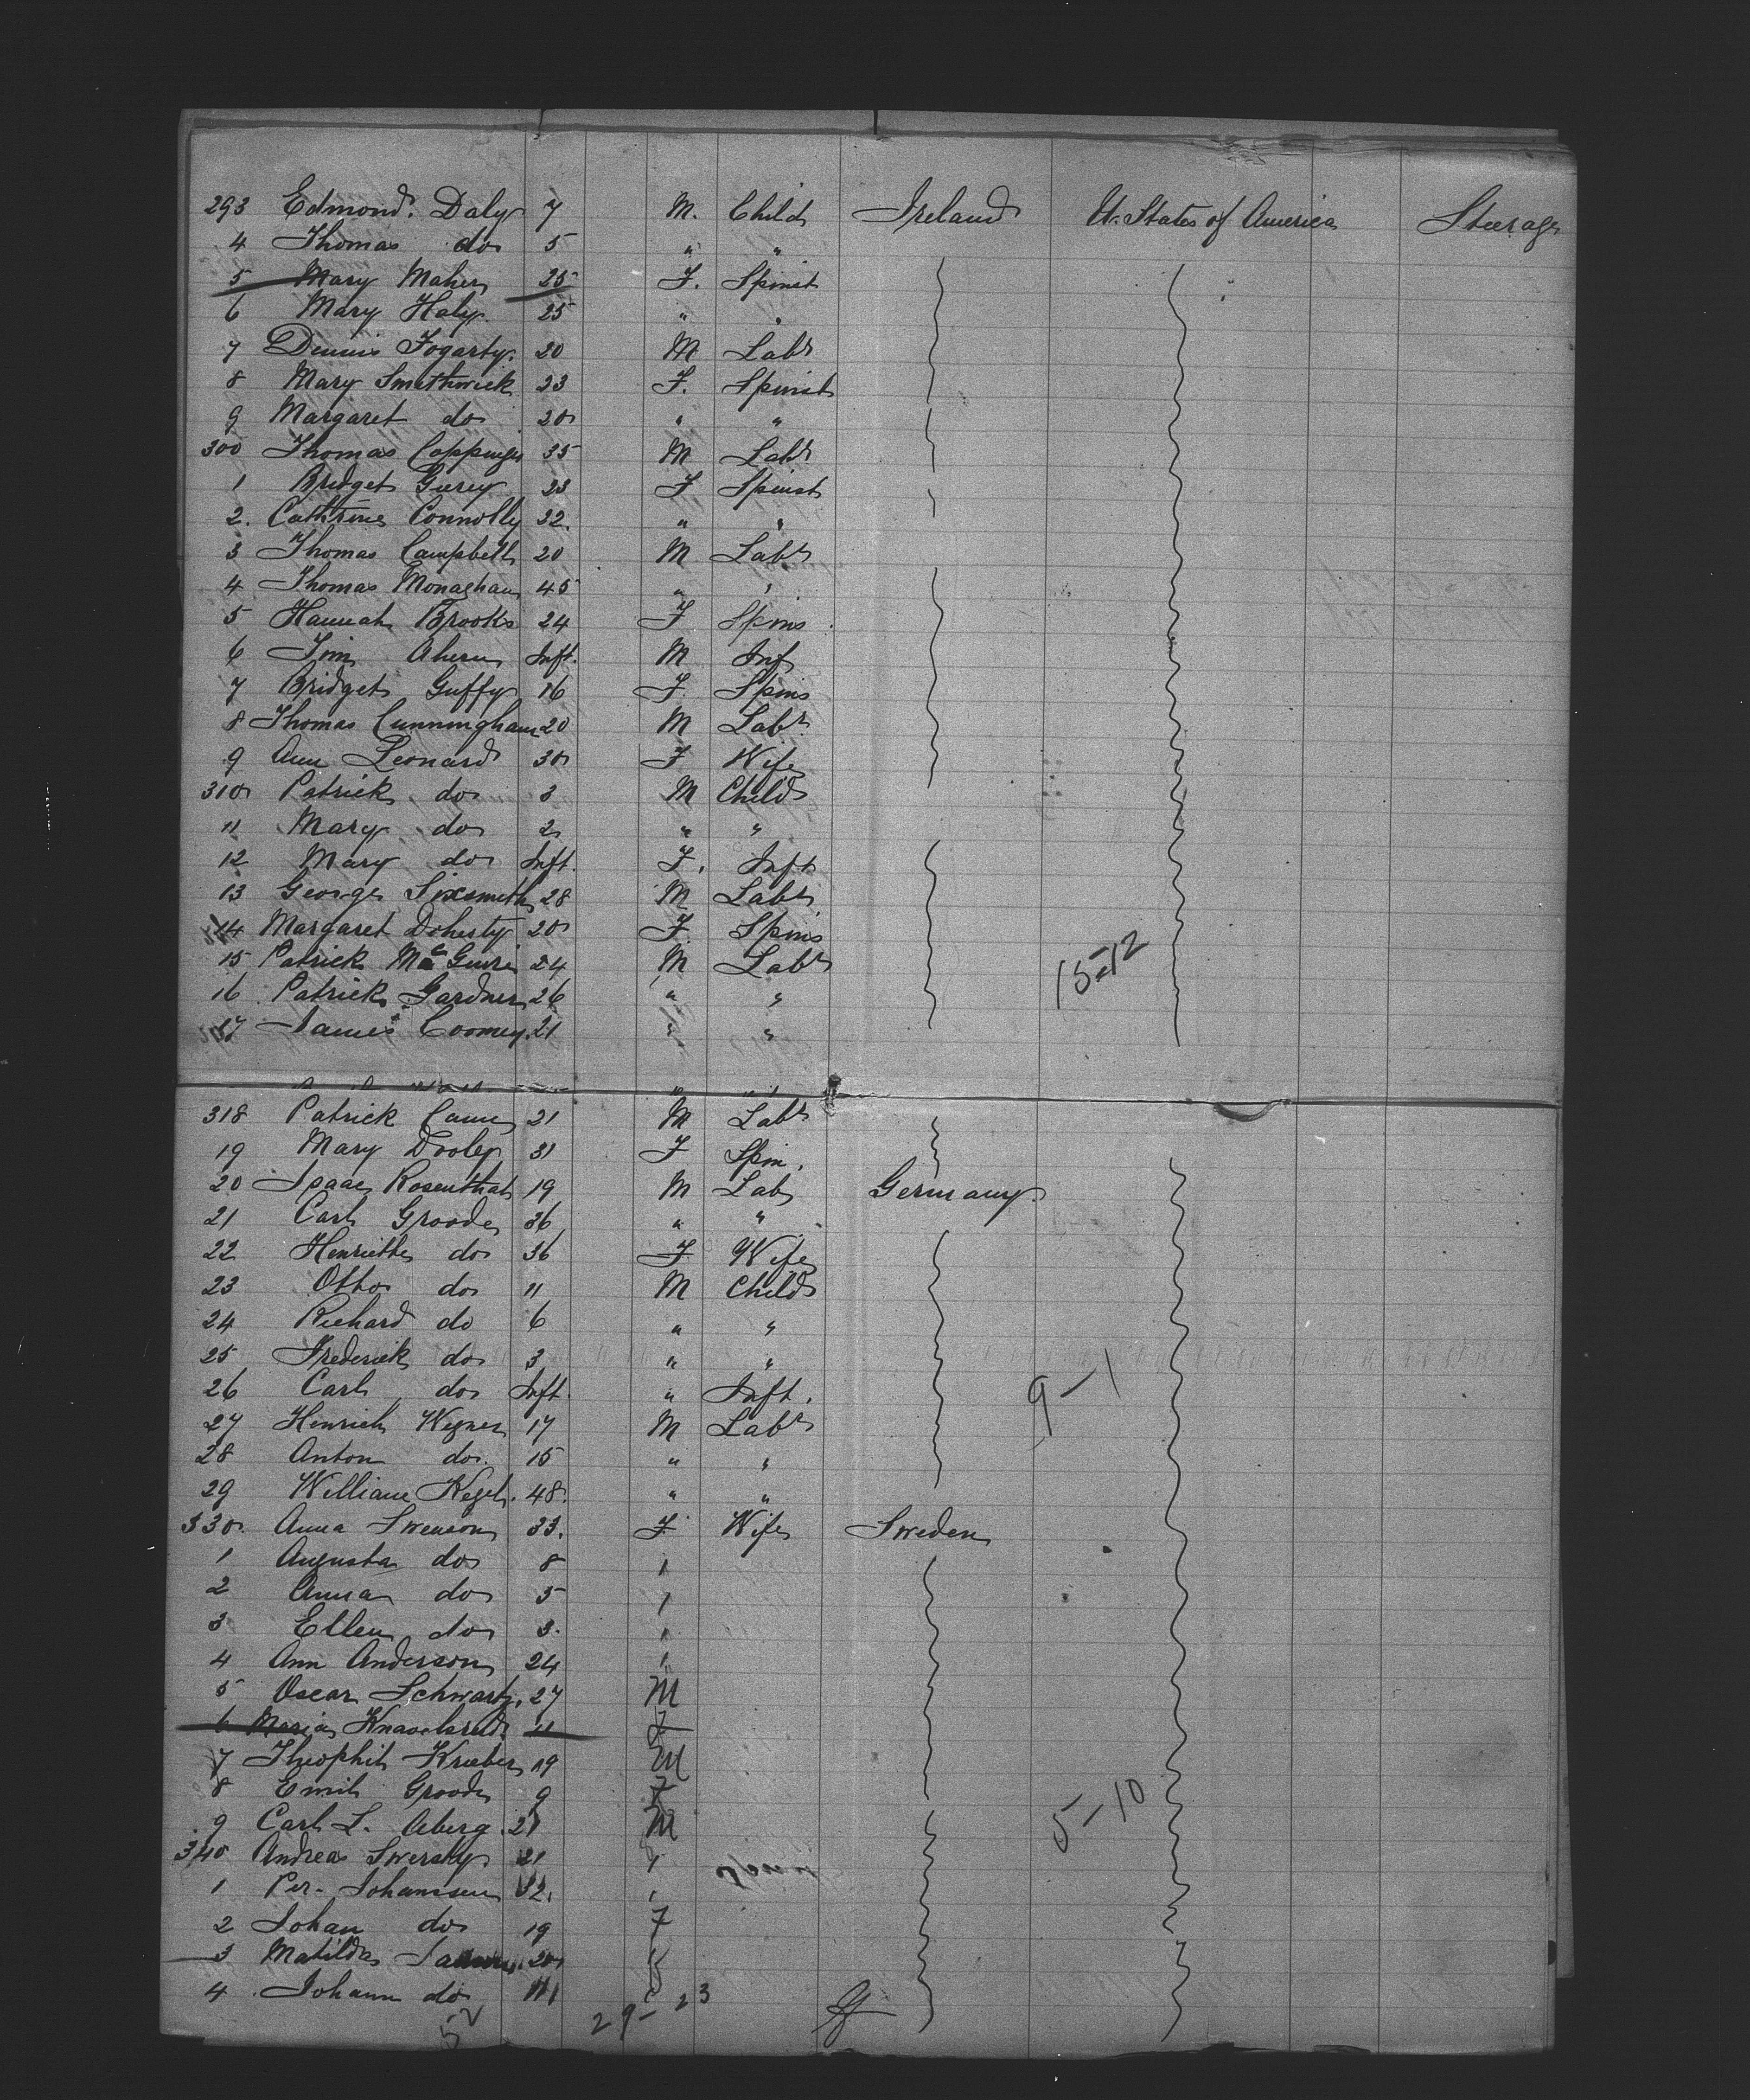 293 Edmond. Daly 7 M. Child Ireland U. States of America Steerage
4 Thomas do 5 " "
5 Mary Maher 25 F. Spinst
6 Mary Haly. 25 " "
7 Dennis Fogarty. 20 M Labr
8 Mary Smithwick 23 F. Spinst
9 Margaret do 20 " "
300 Thomas Coppinger 35 M Labr
1 Bridget 23 F Spinst
2. Cathrine Connolly 32. " "
3 Thomas Campbell 20 M Labr
4 Thomas Monaghan 45 " "
5 Hannah Brooks 24 F Spins
6 Jim Ahern Inft. M Inf
7 Bridget Guffy 16 F. Spins
8 Thomas Cunningham 20 M Labr
9 Ann Leonard 30 F Wife
310 Patrick do 3 M Child
11 Mary do 2 " "
12 Mary do Inft. F. Inft
13 George Sixsmith 28 M Labr
14 Margaret Doherty 20 F. Spins
15 Patrick McGuire 24 M Labr 15-12
16 Patrick Gardner 26 " "
17 James Coomey. 21 " "
318 Patrick 21 M Labr
19 Mary Dooley 31 F Spin.
20 Isaac Rosenthal 19 M Lab Germany.
21 Carl Groode 36 " "
22 Henriette do 36 F. Wife
23 Otto do 11 M Child
24 Richard do 6 " "
25 Frederick do 3 " "
26 Carl do Inft. " Inft. 9-1
27 Henrich Wegner 17 M Labr
28 Anton do. 15 " "
29 William Kegel. 48. " "
330. Anna Swenson 33. F. Wife Sweden
1 Augusta do 8 1
2 Anna do 5 1
3 Ellen do 3. 1
4 Ann Anderson 24 1
5 Oscar Schwartz. 27 M
6 Maria 11 F
7 Theophil Krieber 19 M
8 Emil Groode 9 F 5-10
9 Carl L. Aberg. 21 M
340 Andreas 21 1
1 Per. Johanssen 32. 1
2 Johan do 19 F
3 Matilda 20
4 Johann do 11
52 29-23